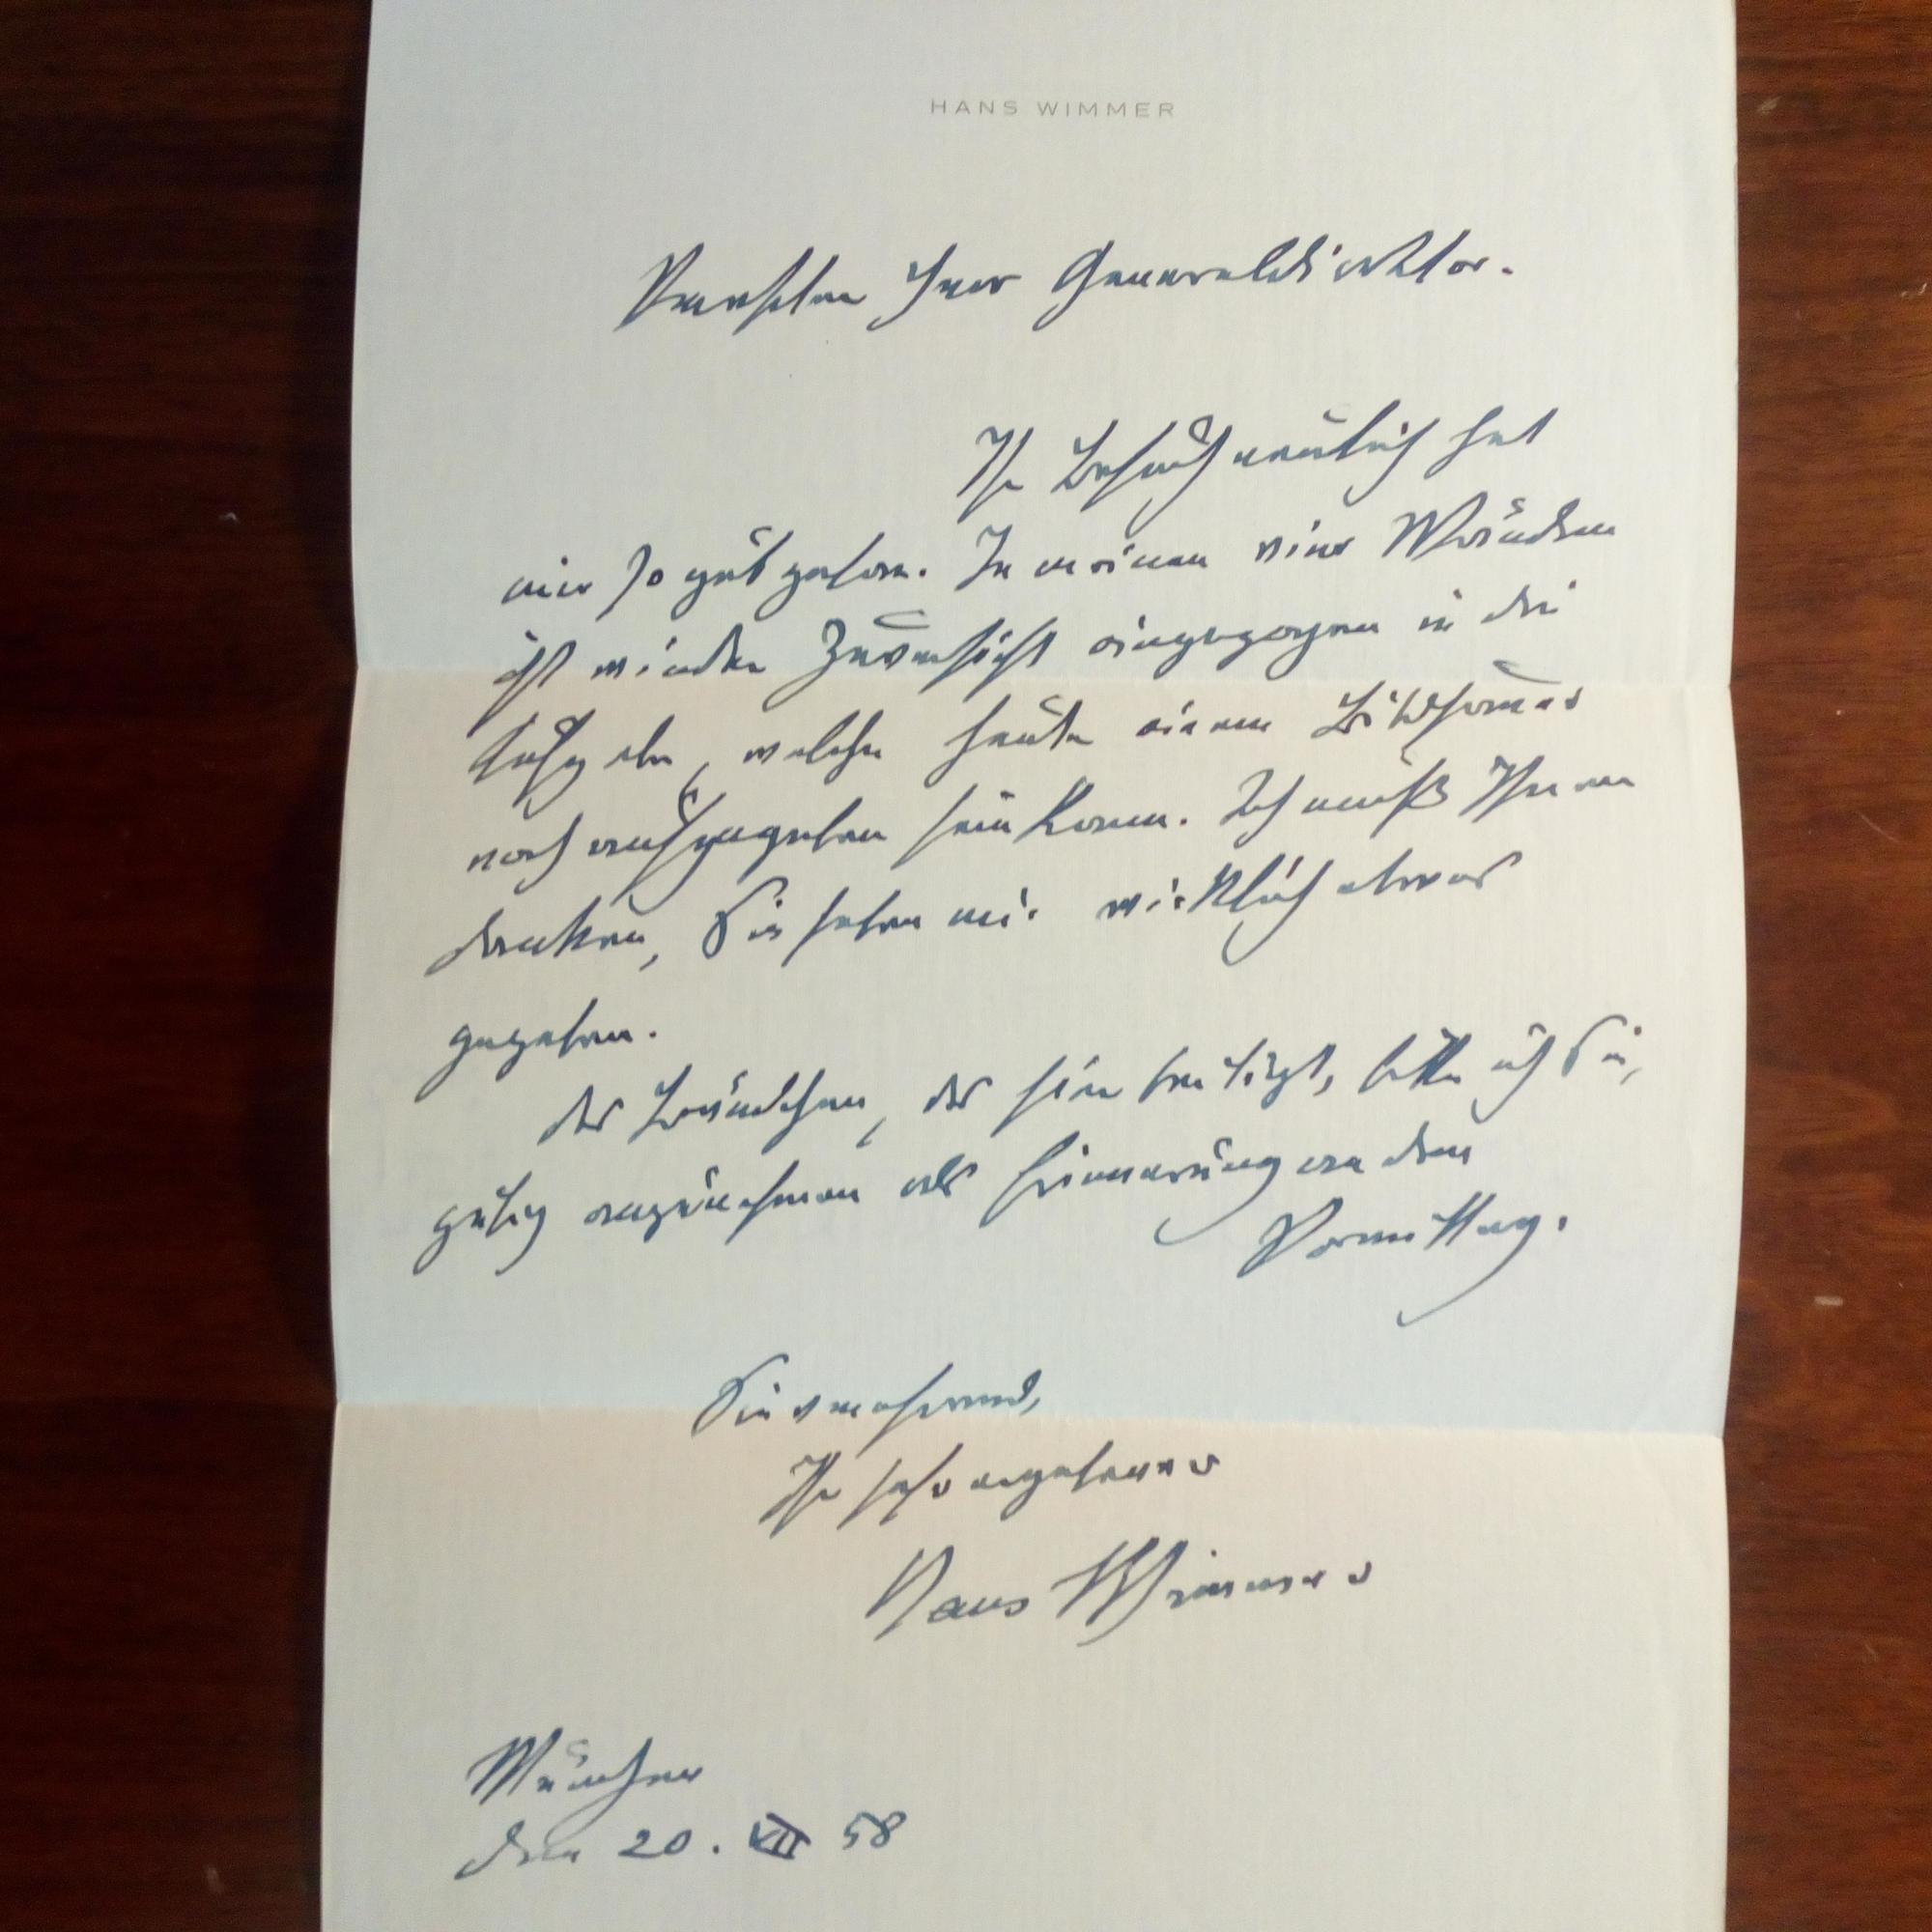 HANS WIMMER
Verehrter Herr Generaldirektor.
Ihr Besuch neulich hat
mir so gut getan. In meinen vier Wänden
ist wieder Zuversicht eingezogen in die
welche heute einem Bildhauer
noch aufgegeben sein kann. Ich muß Ihnen
danken, Sie haben mir wirklich etwas
gegeben.
Das Bändchen, das hier beiliegt, bitte ich Sie,
gütig anzunehmen als Erinnerung an den
Vormittag.
Sie verehrend,
Ihr sehr ergebener
Hans Wimmer
München
den 20. VII 58